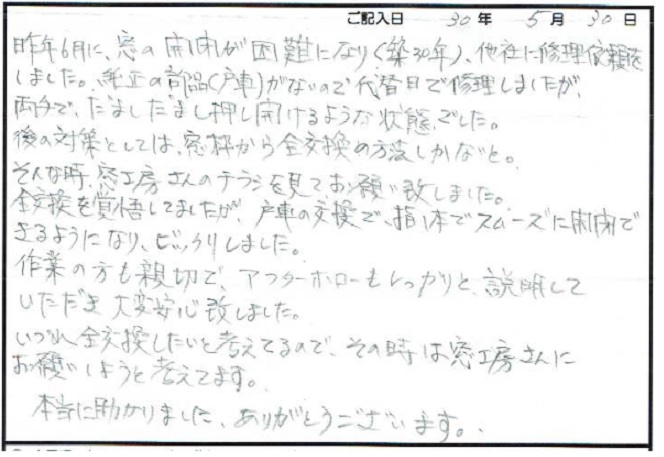 ご記入日 30 年 5 月 30 日
昨年6月に、窓の開閉が困難になり(築30年)、他社に修理依頼を
しました。純正の部品(戸車)がないので代替目で修理しましたが、
両手で、だましだまし押し開けるような状態でした。
後の対策としては、窓枠から全交換の方法しかないと。
そんな時、窓工房さんのチラシを見てお願い致しました。
全交換を覚悟してましたが、戸車の交換で、指1本でスムーズに開閉で
きるようになり、ビックリしました。
作業の方も親切で、アフターホローもしっかりと、説明して
いただき大変安心致しました。
いづれ全交換したいと考えてるので、その時は窓工房さんに
お願いしようと考えてます。
本当に助かりました、ありがとうございます。